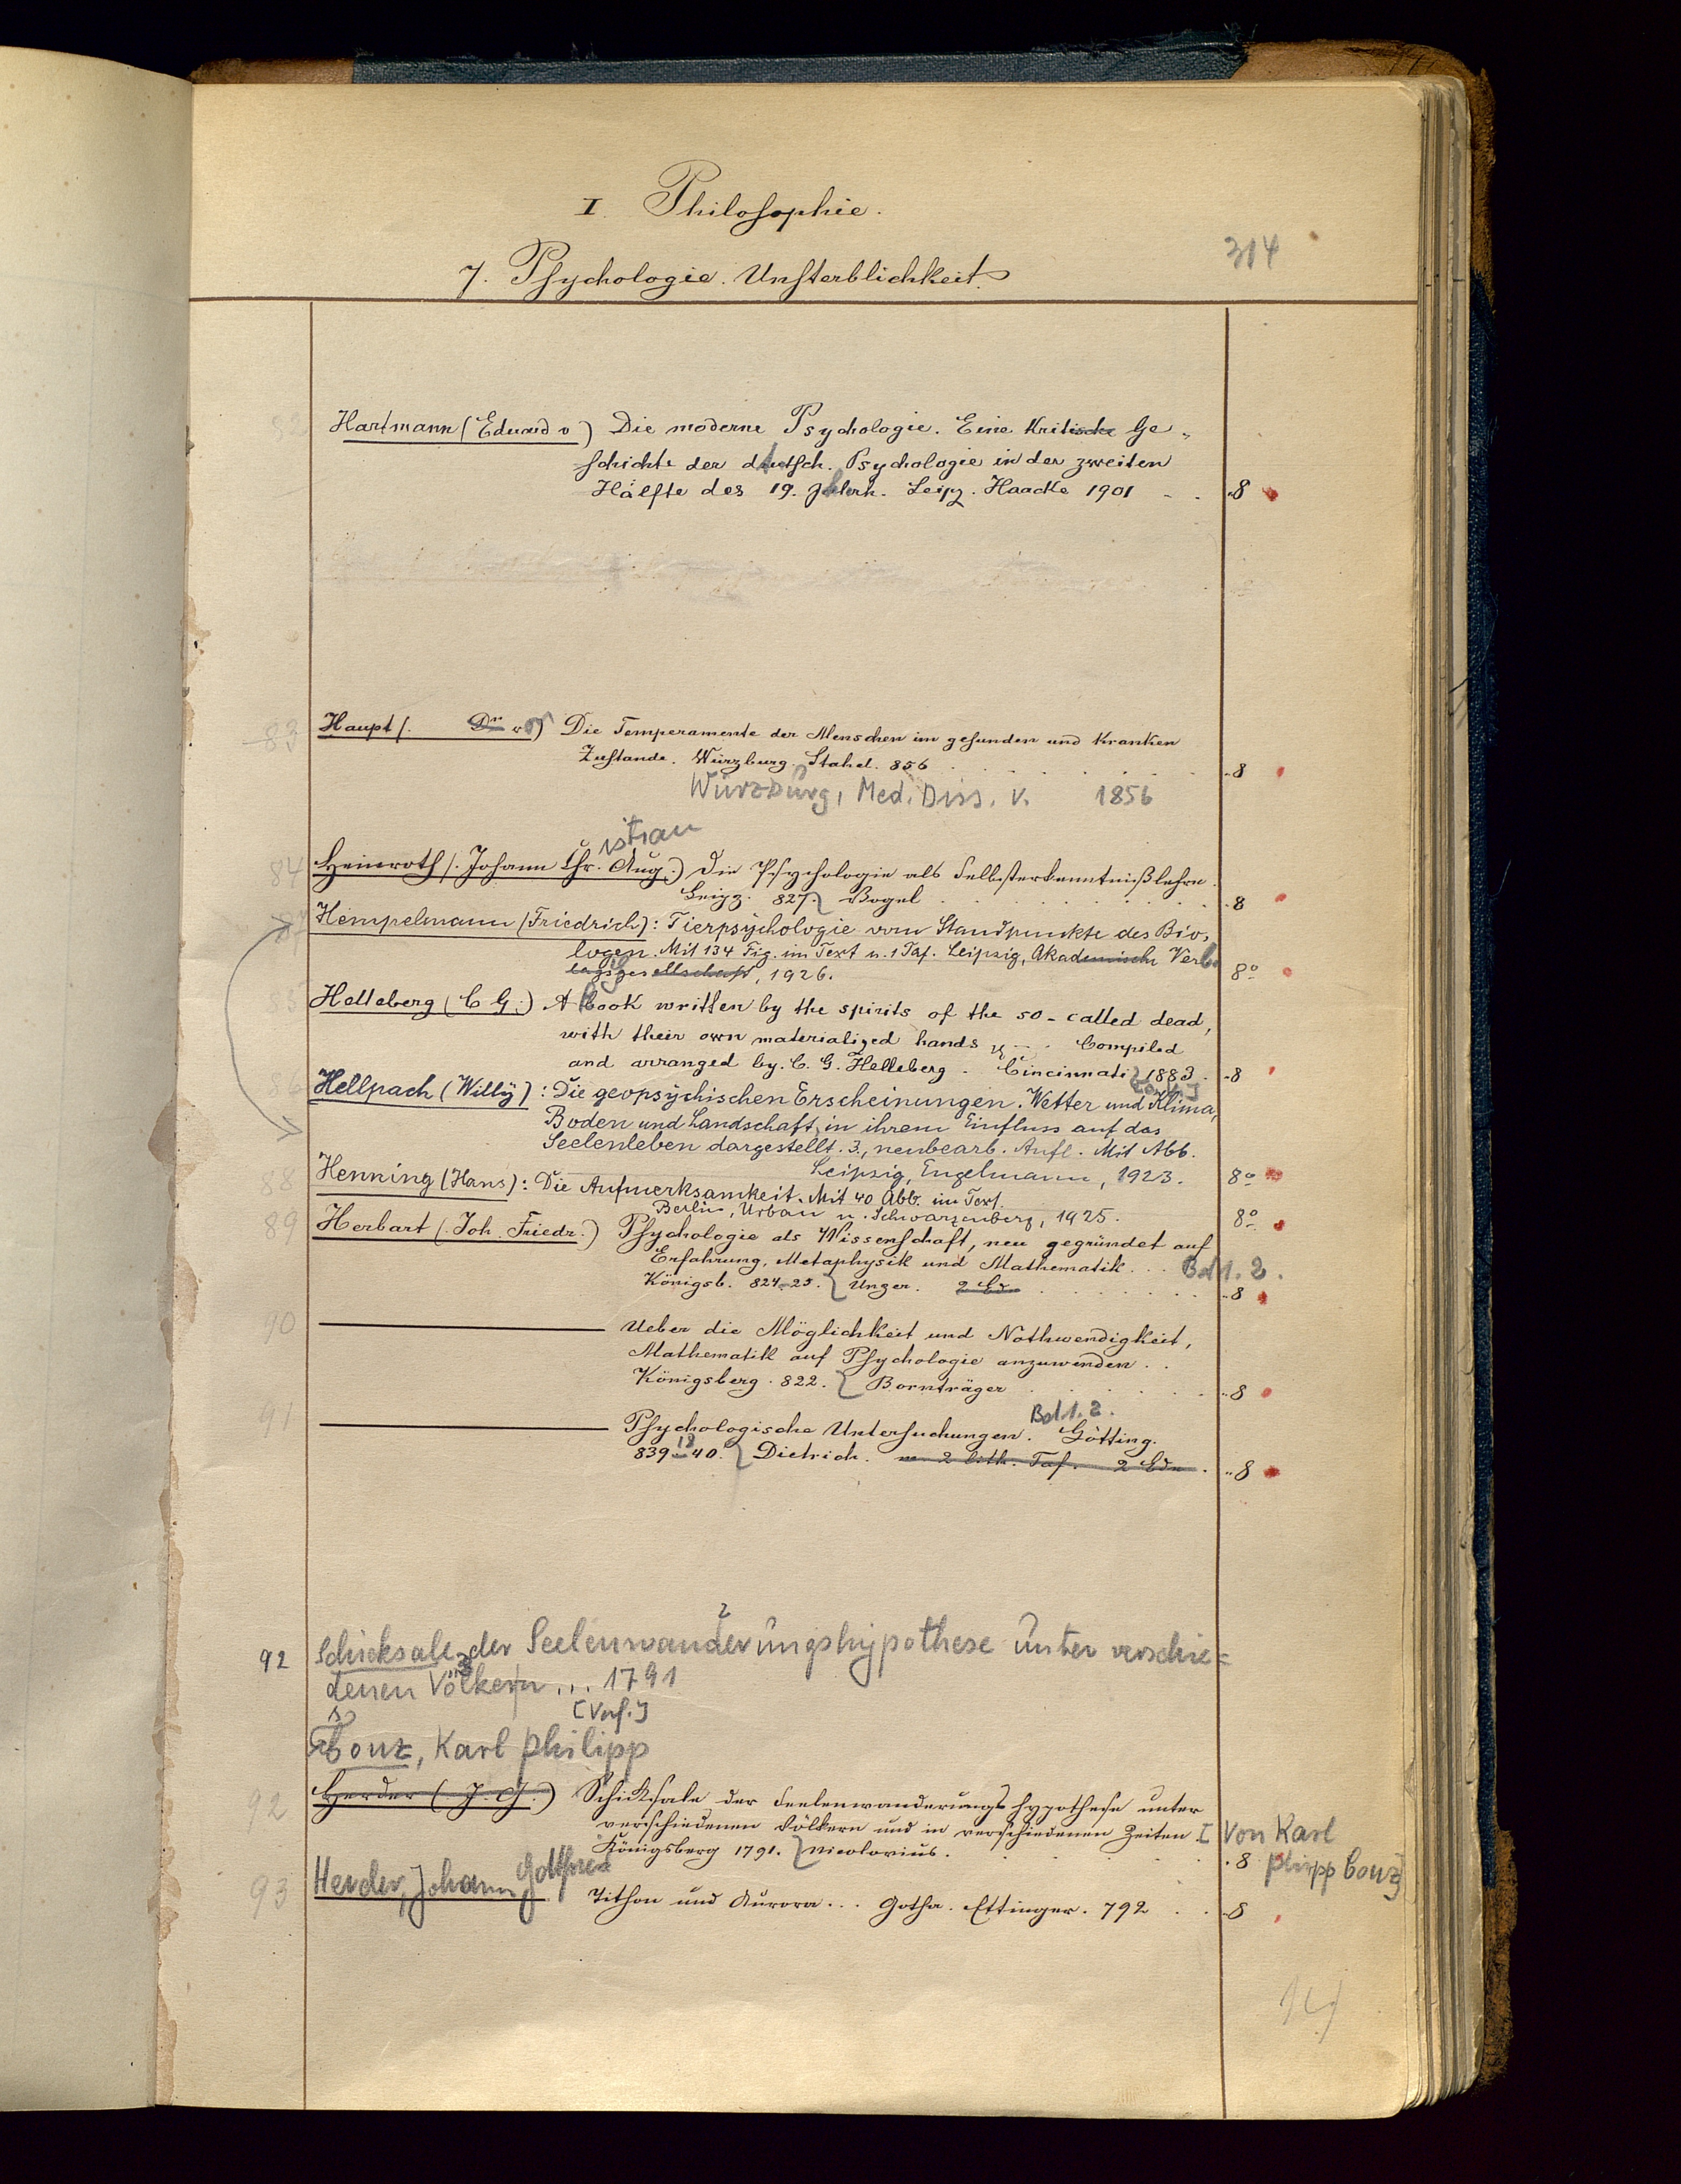 I. Philosophie.
314
7. Psychologie. Unsterblichkeit.
82 Hartmann (Eduard v) Die moderne Psychologie. Eine Kritische Ge-
schichte der deutsch. Psychologie in der zweiten
Hälfte des 19. Leipz. Haacke 1901 . . 8
83 Haupt (. Dr v) Die Temperamente der Menschen im gesunden und kranken
Zustande. Würzburg. Stahel. 856 8
Würzburg, Med. Diss. v. 1856
istian
84 Heinroth (. Johann Chr. Aug.) Die Psychologie als Selbsterkenntnißlehre.
Leipz. 827. Vogel 8
87 Hempelmann (Friedrich): Tierpsychologie vom Standpunkte des Bio-
logen. Mit 134 Fig. im Text u. 1 Taf. Leipzig, Akademische Ver-
lagsgesellschaft, 1926. 8°
85 Helleberg (C. G.) A book written by the spirits of the so-called dead,
with their own materialized hands Compiled
and arranged by. C. G. Helleberg. Cincinnati 1883. 8
86 Hellpach (Willy): Die geopsychischen Erscheinungen. Wetter und Klima,
Boden und Landschaft, in ihrem Einfluss auf das
Seelenleben dargestellt. 3., neubearb. Aufl. Mit Abb.
Leipzig, Engelmann, 1923. 8°
88 Henning (Hans): Die Aufmerksamkeit. Mit 40 Abb. im Text.
Berlin, Urban u. Schwarzenberg, 1925. 8°
89 Herbart (. Joh. Friedr.) Psychologie als Wissenschaft, neu gegründet auf
Erfahrung, Metaphysik und Mathematik... Bd 1. 2.
Königsb. 824-25. Unger. 2 Bde 8
90 Ueber die Möglichkeit und Nothwendigkeit,
Mathematik auf Psychologie anzuwenden..
Königsberg. 822. Bornträger 8
Bd. 1. 2.
91 Psychologische Untersuchungen. Götting.
839-40. Dietrich. m. 2 lith. Taf. 2 Bde. 8
18
92 Schicksale der Seelenwanderungshypothese unter verschie=
denen Völkern ... 1791
[Verf.]
Conz, Karl Philipp
92 Herder (. J. G.) Schicksale der Seelenwanderungshypothese unter
verschiedenen Völkern und in verschiedenen Zeiten. [Von Karl
Königsberg 1791. Nicolovius. 8 Philipp Conz]
93 Herder, Johann Gottfried Tithon und Aurora... Gotha. Ettinger. 792 . . 8
14